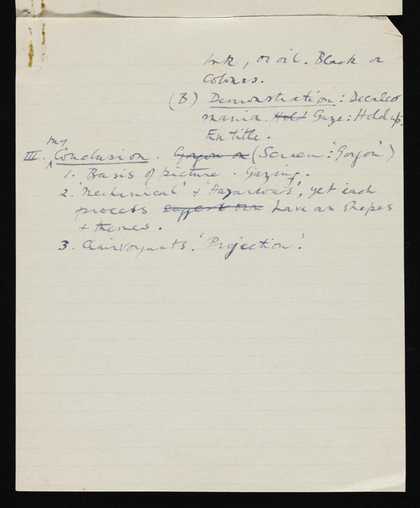 Ink, or oil. Black or
Colours.
(B) Demonstration: Decalco
mania. Hold Gaze: Hold up.
Entitle.
III. my Conclusion. Gorgon on (Screen: 'Gorgon')
1. Basis of picture. Gazing.
2. 'Mechanical' & 'Hazardous', yet each
process suggest own have own shapes
& themes.
3. Clairvoyants. 'Projection'.